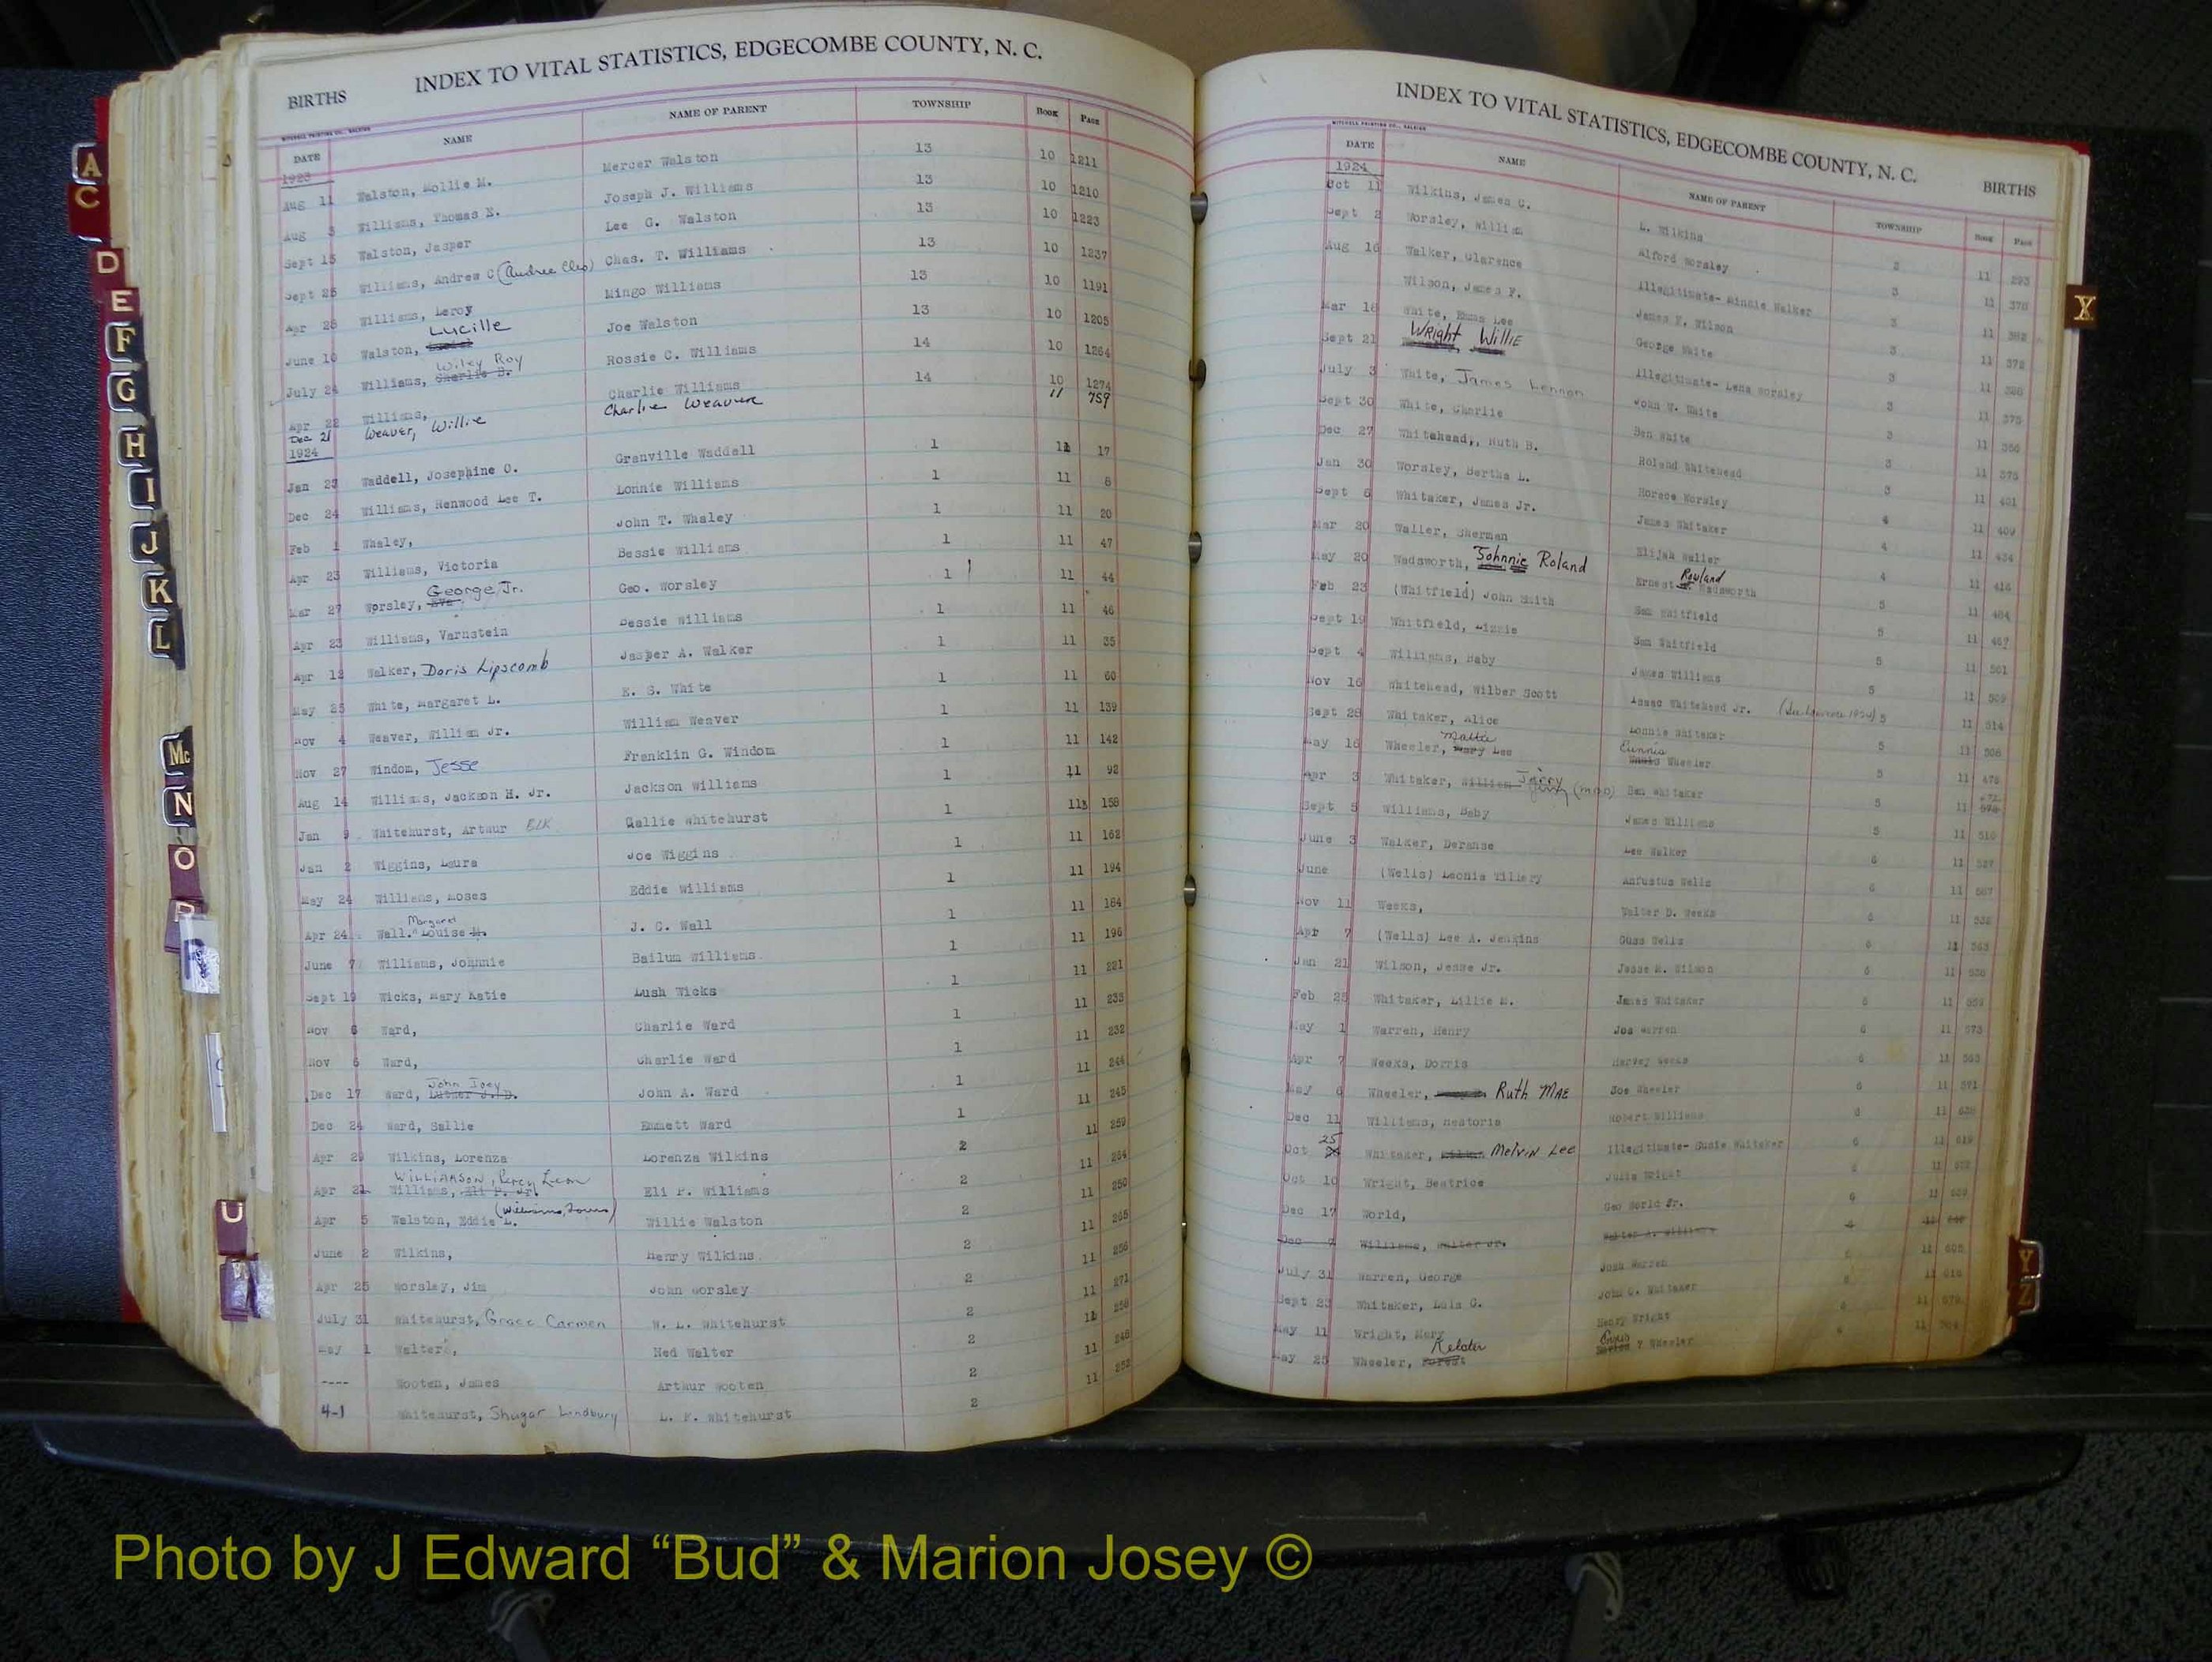 INDEX TO VITAL STATISTICS, EDGECOMBE COUNTY, N. C.
BIRTHS
MITCHELL PRINTING CO., RALEIGH
DATE NAME NAME OF PARENT TOWNSHIP BOOK PAGE
1923
Aug 11 Walston, Mollie M. Mercer Walston 13 10 1211
Aug 3 Williams, Thomas E. Joseph J. Williams 13 10 1210
Sept 15 Walston, Jasper Lee G. Walston 13 10 1223
Sept 25 Williams, Andrew C (Audree Cleo) Chas. T. Williams 13 10 1237
Apr 28 Williams, Leroy Mingo Williams 13 10 1191
June 10 Walston, Lucille Joe Walston 13 10 1205
July 24 Williams, Wiley Roy Charlie B. Rossie C. Williams 14 10 1264
Apr 22 Williams, Charlie Williams 14 10 1274
Dec 21 Weaver, Willie Charlie Weaver 11 759
1924
Jan 23 Waddell, Josephine O. Granville Waddell 1 11 17
Dec 24 Williams, Henwood Lee T. Lonnie Williams 1 11 8
Feb 1 Whaley, John T. Whaley 1 11 20
Apr 23 Williams, Victoria Bessie Williams 1 11 47
Mar 27 Worsley, George Jr. Geo. Worsley 1 11 44
Apr 23 Williams, Varnstein Bessie Williams 1 11 46
Apr 12 Walker, Doris Lipscomb Jasper A. Walker 1 11 35
May 25 White, Margaret L. E. S. White 1 11 60
Nov 4 Weaver, William Jr. William Weaver 1 11 139
Nov 27 Windom, Jesse Franklin G. Windom 1 11 142
Aug 14 Williams, Jackson H. Jr. Jackson Williams 1 11 92
Jan 9 Whitehurst, Arthur Elk Qallie Whitehurst 1 11 158
Jan 2 Wiggins, Laura Joe Wiggins 1 11 162
May 24 Williams, Moses Eddie Williams 1 11 194
Apr 24 Wall. Margaret Louise M. J. C. Wall 1 11 164
June 7 Williams, Johnnie Bailum Williams 1 11 196
Sept 19 Wicks, Mary Katie Lush Wicks 1 11 221
Nov 6 Ward, Charlie Ward 1 11 233
Nov 6 Ward, Charlie Ward 1 11 232
Dec 17 Ward, John Joey Luther J. D. John A. Ward 1 11 244
Dec 24 Ward, Sallie Emmett Ward 1 11 245
Apr 29 Wilkins, Lorenza Lorenza Wilkins 2 11 259
Apr 21 WILLIAMSON, Percy Leon Williams, Eli P. Jr. Eli P. Williams 2 11 264
Apr 5 Walston, Eddie L. Willie Walston 2 11 250
June 2 Wilkins, Henry Wilkins 2 11 265
Apr 25 Worsley, Jim John Worsley 2 11 256
July 31 Whitehurst, Grace Carmen W. L. Whitehurst 2 11 271
May 1 Walter, Ned Walter 2 11 258
---- Wooten, James Arthur Wooten 2 11 248
4-1 Whitehurst, Shugar Lindbury L. F. Whitehurst 2 11 252
INDEX TO VITAL STATISTICS, EDGECOMBE COUNTY, N. C.
BIRTHS
MITCHELL PRINTING CO., RALEIGH
DATE NAME NAME OF PARENT TOWNSHIP BOOK PAGE
1924
Oct 11 Wilkins, James C. L. Wilkins 3 11 293
Sept 2 Worsley, William Alford Worsley 3 11 378
Aug 16 Walker, Clarence Illegitimate- Minnie Walker 3 11
Wilson, James F. James F. Wilson 3 11 372
Mar 18 White, Emma Lee George White 3 11
Sept 21 Wright Willie Illegitimate- Lena Worsley 3 11 373
July 3 White, James Lennon John W. White 3 11
Sept 30 White, Charlie Ben White 3 11
Dec 27 Whitehead, Ruth B. Roland Whitehead 3 11 401
Jan 30 Worsley, Bertha L. Horace Worsley 4 11 409
Sept 6 Whitaker, James Jr. James Whitaker 4 11 434
Mar 20 Waller, Sherman Elijah Waller 4 11 416
May 20 Wadsworth, Johnnie Roland Ernest Rowland Wadsworth 5 11 484
Feb 23 (Whitfield) John Smith Sam Whitfield 5 11 457
Sept 19 Whitfield, Lizzie Sam Whitfield 5 11 501
Sept 4 Williams, Baby James Williams 5 11 509
Nov 16 Whitehead, Wilber Scott Isaac Whitehead Jr. 5 11 514
Sept 28 Whitaker, Alice Lonnie Whitaker 5 11 508
May 16 Wheeler, Mattie Mary Lee Eunnis Wheeler 5 11 478
Apr 3 Whitaker, William Jerry Ben Whitaker 5 11
Sept 5 Williams, Baby James Williams 5 11 510
June 3 Walker, Deranse Lee Walker 6 11 527
June (Wells) Leonis Tillery Anfustus Wells 6 11 567
Nov 11 Weeks, Walter D. Weeks 6 11 532
Apr 7 (Wells) Lee A. Jenkins Guss Wells 6 11 563
Jan 21 Wilson, Jesse Jr. Jesse M. Wilson 6 11 538
Feb 25 Whitaker, Lillie M. James Whitaker 6 11 553
May 1 Warren, Henry Joe Warren 6 11 573
Apr 7 Weeks, Dorris Harvey Weeks 6 11 565
May 6 Wheeler, Ruth Mae Joe Wheeler 6 11 571
Dec 11 Williams, Restoria Robert Williams 6 11 638
Oct 25 Whitaker, Melvin Lee Illegitimate- Susie Whitaker 6 11 619
Oct 10 Wright, Beatrice Julia Wright 6 11
Dec 17 World, Geo World Jr. 6 11 639
Dec 7 Williams, Walter Jr. Walter A. Williams 6 11
July 31 Warren, George Josh Warren 6 11 605
Sept 23 Whitaker, Lula C. John C. Whitaker 6 11 616
May 11 Wright, Mary Henry Wright 6 11
May 25 Wheeler, Wheeler 6 11
A
C
D
E
F
G
H
I
J
K
L
Mc
N
O
P
U
X
Y
Z
Photo by J Edward “Bud” & Marion Josey ©